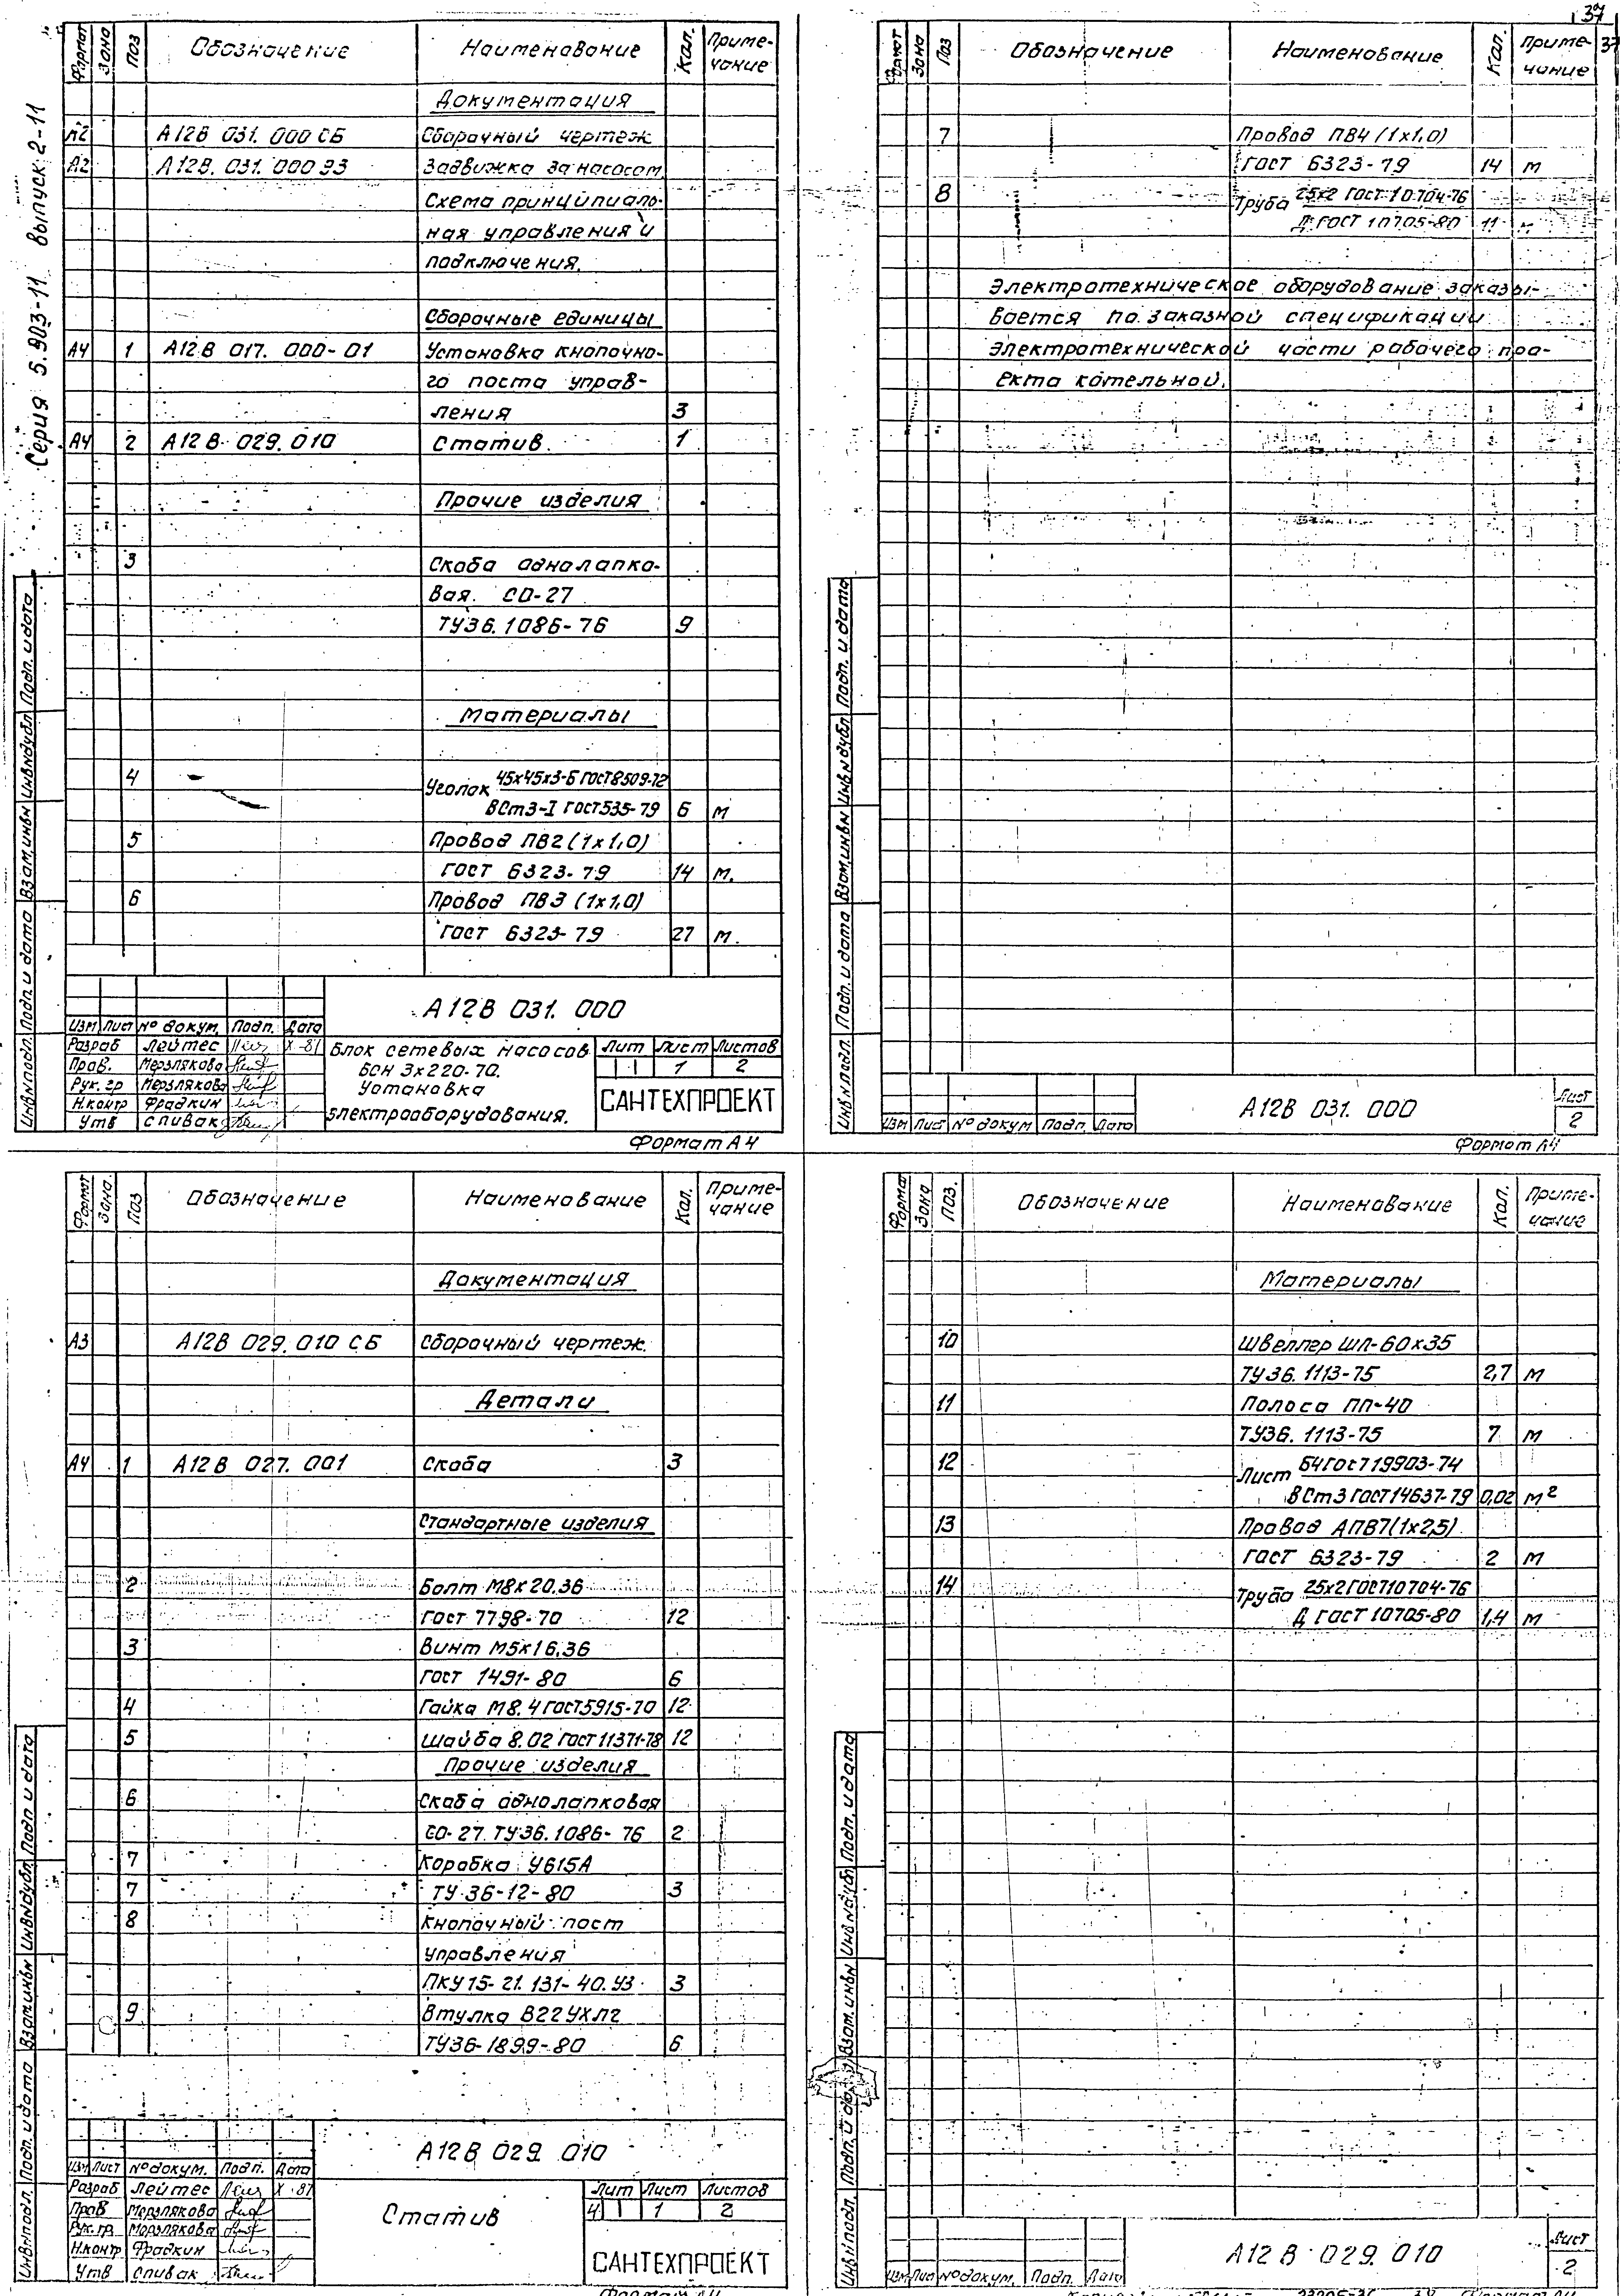 37
37
Серия 5.903-11 выпуск 2-11
Формат Зона Поз Обозначение Наименование Кол. Приме-
чание
Документация
А2 А12В 031. 000 СБ Сборочный чертеж
А2 А12В. 031. 000 ЭЗ Задвижка за насосом.
Схема принципиаль-
ная управления и
подключения.
Сборочные единицы
А4 1 А12В 017. 000-01 Установка кнопочно-
го поста управ-
ления 3
А4 2 А12В 029. 010 Статив 1
Прочие изделия
3 Скоба однолапко-
вая. СО-27
ТУ36. 1086-76 9
Материалы
4 Уголок 45х45х3-Б ГОСТ8509-72
ВСт3-I ГОСТ535-79 6 м
5 Провод ПВ2 (1х1,0)
ГОСТ 6323-79 14 м.
6 Провод ПВ3 (1х1,0)
ГОСТ 6323-79 27 м.
Инв.№подл. Подп. и дата Взам.инв№ Инв№дубл Подп. и дата
А12В 031. 000
Изм Лист № докум. Подп. Дата
Разраб Лейтес Х-81
Пров. Мерзлякова
Рук. гр Мерзлякова
Н.контр Фрадкин
Утв Спивак
Блок сетевых насосов
БСН 3х220-70.
Установка
электрооборудования.
Лит Лист Листов
1 2
САНТЕХПРОЕКТ
Формат А4
Формат Зона Поз Обозначение Наименование Кол. Приме-
чание
7 Провод ПВ4 (1х1,0)
ГОСТ 6323-79 14 м
8 Труба 25х2 ГОСТ 10704-76
Д ГОСТ 10705-80 11 м
Электротехническое оборудование заказы-
вается по заказной спецификации
электротехнической части рабочего про-
екта котельной.
Инв.№подл. Подп. и дата Взам.инв№ Инв№дубл Подп. и дата
Изм Лист № докум Подп. Дата
А12В 031. 000
Лист
2
Формат А4
Формат Зона. Поз Обозначение Наименование Кол. Приме-
чание
Документация
А3 А12В 029. 010 СБ Сборочный чертеж.
Детали
А4 1 А12В 027. 001 Скоба 3
Стандартные изделия
2 Болт М8х20.36
ГОСТ 7798-70 12
3 Винт М5х16.36
ГОСТ 1491-80 6
4 Гайка М8.4 ГОСТ5915-70 12
5 Шайба 8.02 ГОСТ 11371-78 12
Прочие изделия
6 Скоба однолапковая
СО-27. ТУ36. 1086-76 2
7 Коробка У615А
7 ТУ 36-12-80 3
8 Кнопочный пост
управления
ПКУ15-21.131-40.У3 3
9 Втулка В22УХЛ2
ТУ36-1899-80 6
Инв.№подл. Подп. и дата Взам.инв№ Инв№дубл. Подп и дата
А12В 029. 010
Изм Лист № докум. Подп. Дата
Разраб Лейтес Х-81
Пров Мерзлякова
Рук. гр. Мерзлякова
Н.контр Фрадкин
Утв Спивак
Статив
Лит Лист Листов
Ч 1 2
САНТЕХПРОЕКТ
Формат А4
Формат Зона Поз. Обозначение Наименование Кол. Приме-
чание
Материалы
10 Швеллер ШЛ-60х35
ТУ36. 1113-75 2,7 м
11 Полоса ПП-40
ТУ36. 1113-75 7 м
12 Лист Б4ГОСТ19903-74
ВСт3 ГОСТ14637-79 0,02 м²
13 Провод АПВ7(1х2,5)
ГОСТ 6323-79 2 м
14 Труба 25х2ГОСТ10704-76
Д ГОСТ 10705-80 1,4 м
Инв.№подл. Подп. и Взам.инв№ Инв.№дубл Подп. и дата
Изм Лист № докум. Подп. Дата
А12В 029. 010
Лист
2
Формат А4